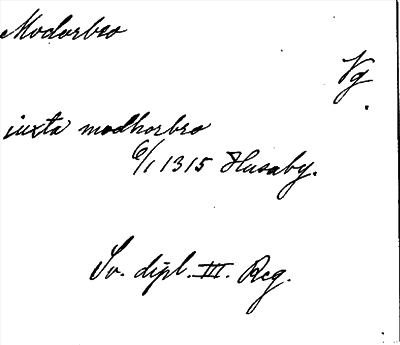 Modorbro
Vg
.
iuxta modhorbro
6/1 1315 Husaby.
Sv. dipl. III. Reg.